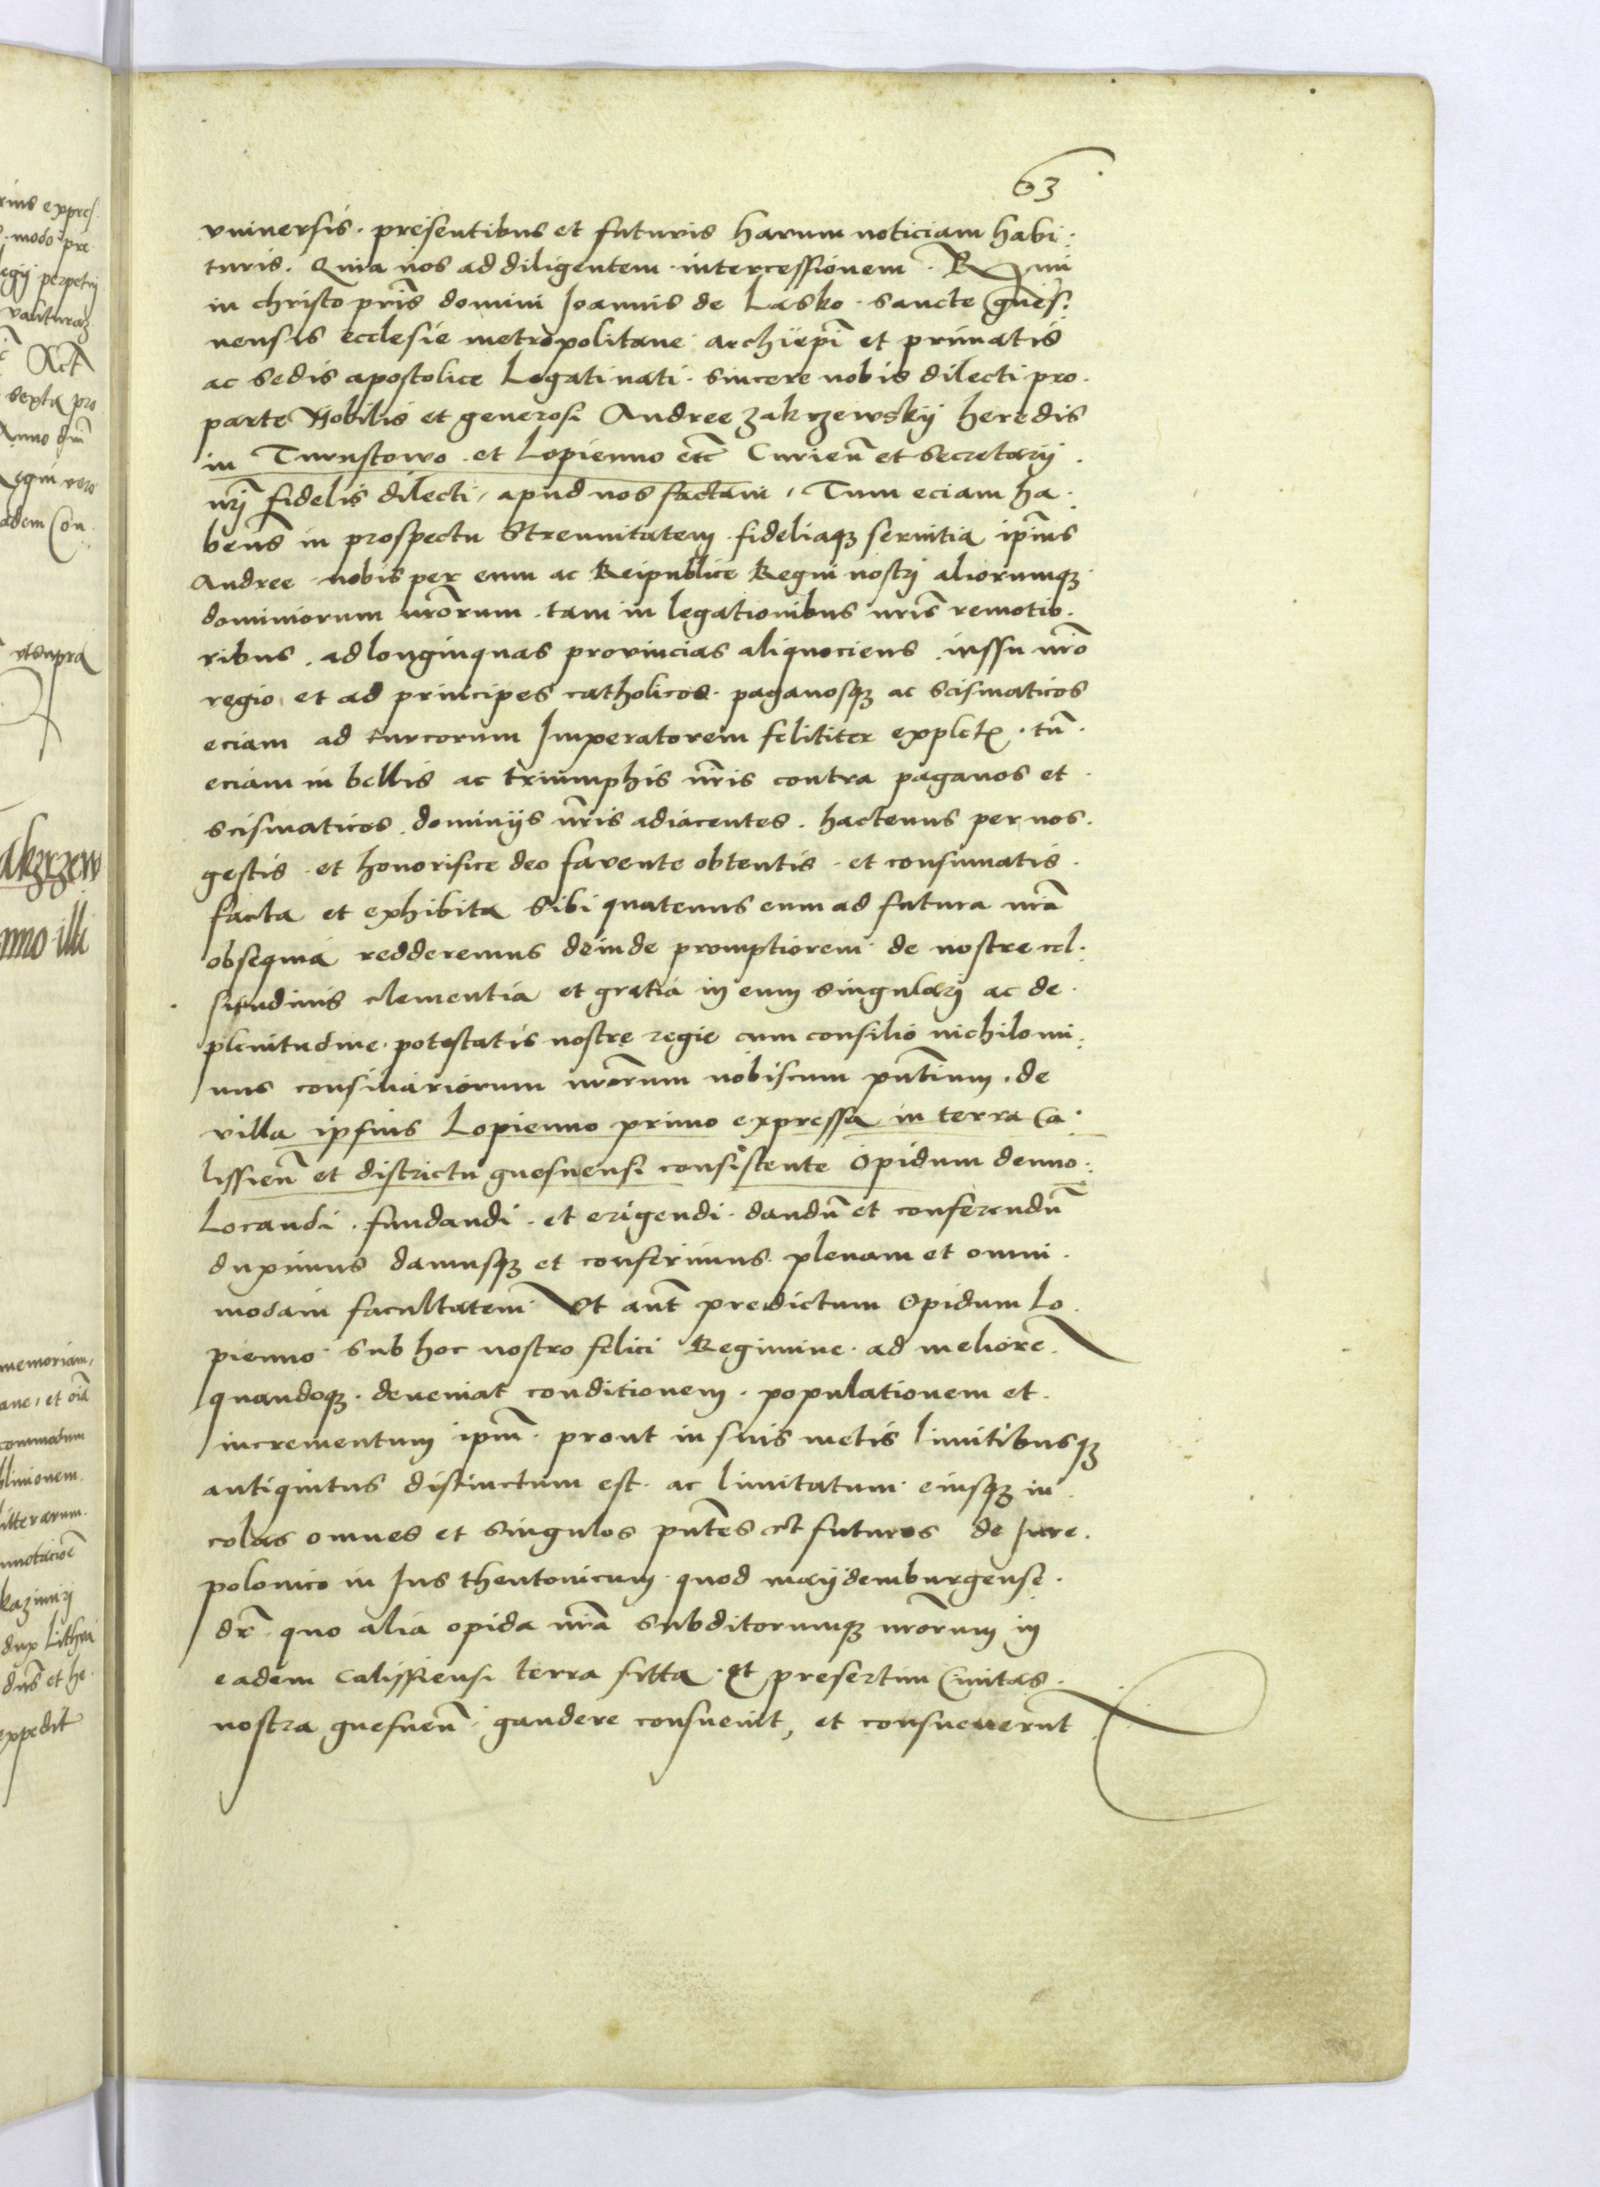 63
vniuersis · presentibus et futuris harum noticiam habi:
turis. Quia nos ad diligentem · intercessionem · Rmi
in christo pris̃ domini Joannis de Lasko · sancte gnes:
nensis ecclesie metropolitane archiepĩ et primatis
ac sedis apostolice Legati nati · sincere nobis dilecti pro ·
parte Nobilis et generosi Andree Zakrzewskij heredis
in Turostowo · et Lopienno etc̃ Curieñ et Secretarij ·
nr̃j fidelis dilecti, apud nos factam, Tum eciam ha ·
bens̃ in prospectu Strennitatem · fideliaqȝ seruitia ip̃ius
Andree · nobis per eum ac Reipublice Regni nostrj aliorumqȝ
dominiorum nr̃orum · tam in legationibus nris̃ remotio ·
ribus · ad longinquas prouincias aliquociens · iussu nrõ
regio et ad principes catholicos · paganosqȝ ac scismaticos
eciam ad turcorum Imperatorem felititer expletȩ · tũ ·
eciam in bellis ac triumphis nr̃is contra paganos et ·
scismaticos · dominijs nr̃is adiacentes · hactenus per nos ·
gestis · et honorifice deo favente obtentis · et consumatis ·
facta et exhibita Sibi quatenus eum ad futura nrã
obsequia redderemus deinde promptiorem · de nostre cel:
situdinis clementia et gratia in eum singularj ac de ·
plenitudine · potestatis nostre regie cum consilio nichilomi:
nus consiliariorum nr̃orum nobiscum pñtium · de
villa ipsius Lopienno primo expressa in terra Ca:
lissieñ et districtu gnesnensi consistente Opidum denuo:
Locandi · fundandi · et erigendi · dandũ et conferendũ
duximus damusqȝ et conferimus plenam et omni ·
modam facultatem Vt aut̃ predictum Opidum Lo ·
pienno · sub hoc nostro felici Regimine · ad meliorẽ
quandoqȝ · deueniat conditionem · populationem et ·
incrementum ip̃m · prout in suis metis limitibusqȝ
antiquitus distinctum est · ac limitatum eiusqȝ in
colas omnes et singulos pñtes et futuros de Jure ·
polonico in Jus theutonicum quod maijdemburgense ·
dr̃ quo alia opida nrã subditorumqȝ nr̃orum in
eadem calissiensi terra sitta · et presertim Ciuitas ·
nostra gnesneñ gaudere consueuit, et consueuerũt